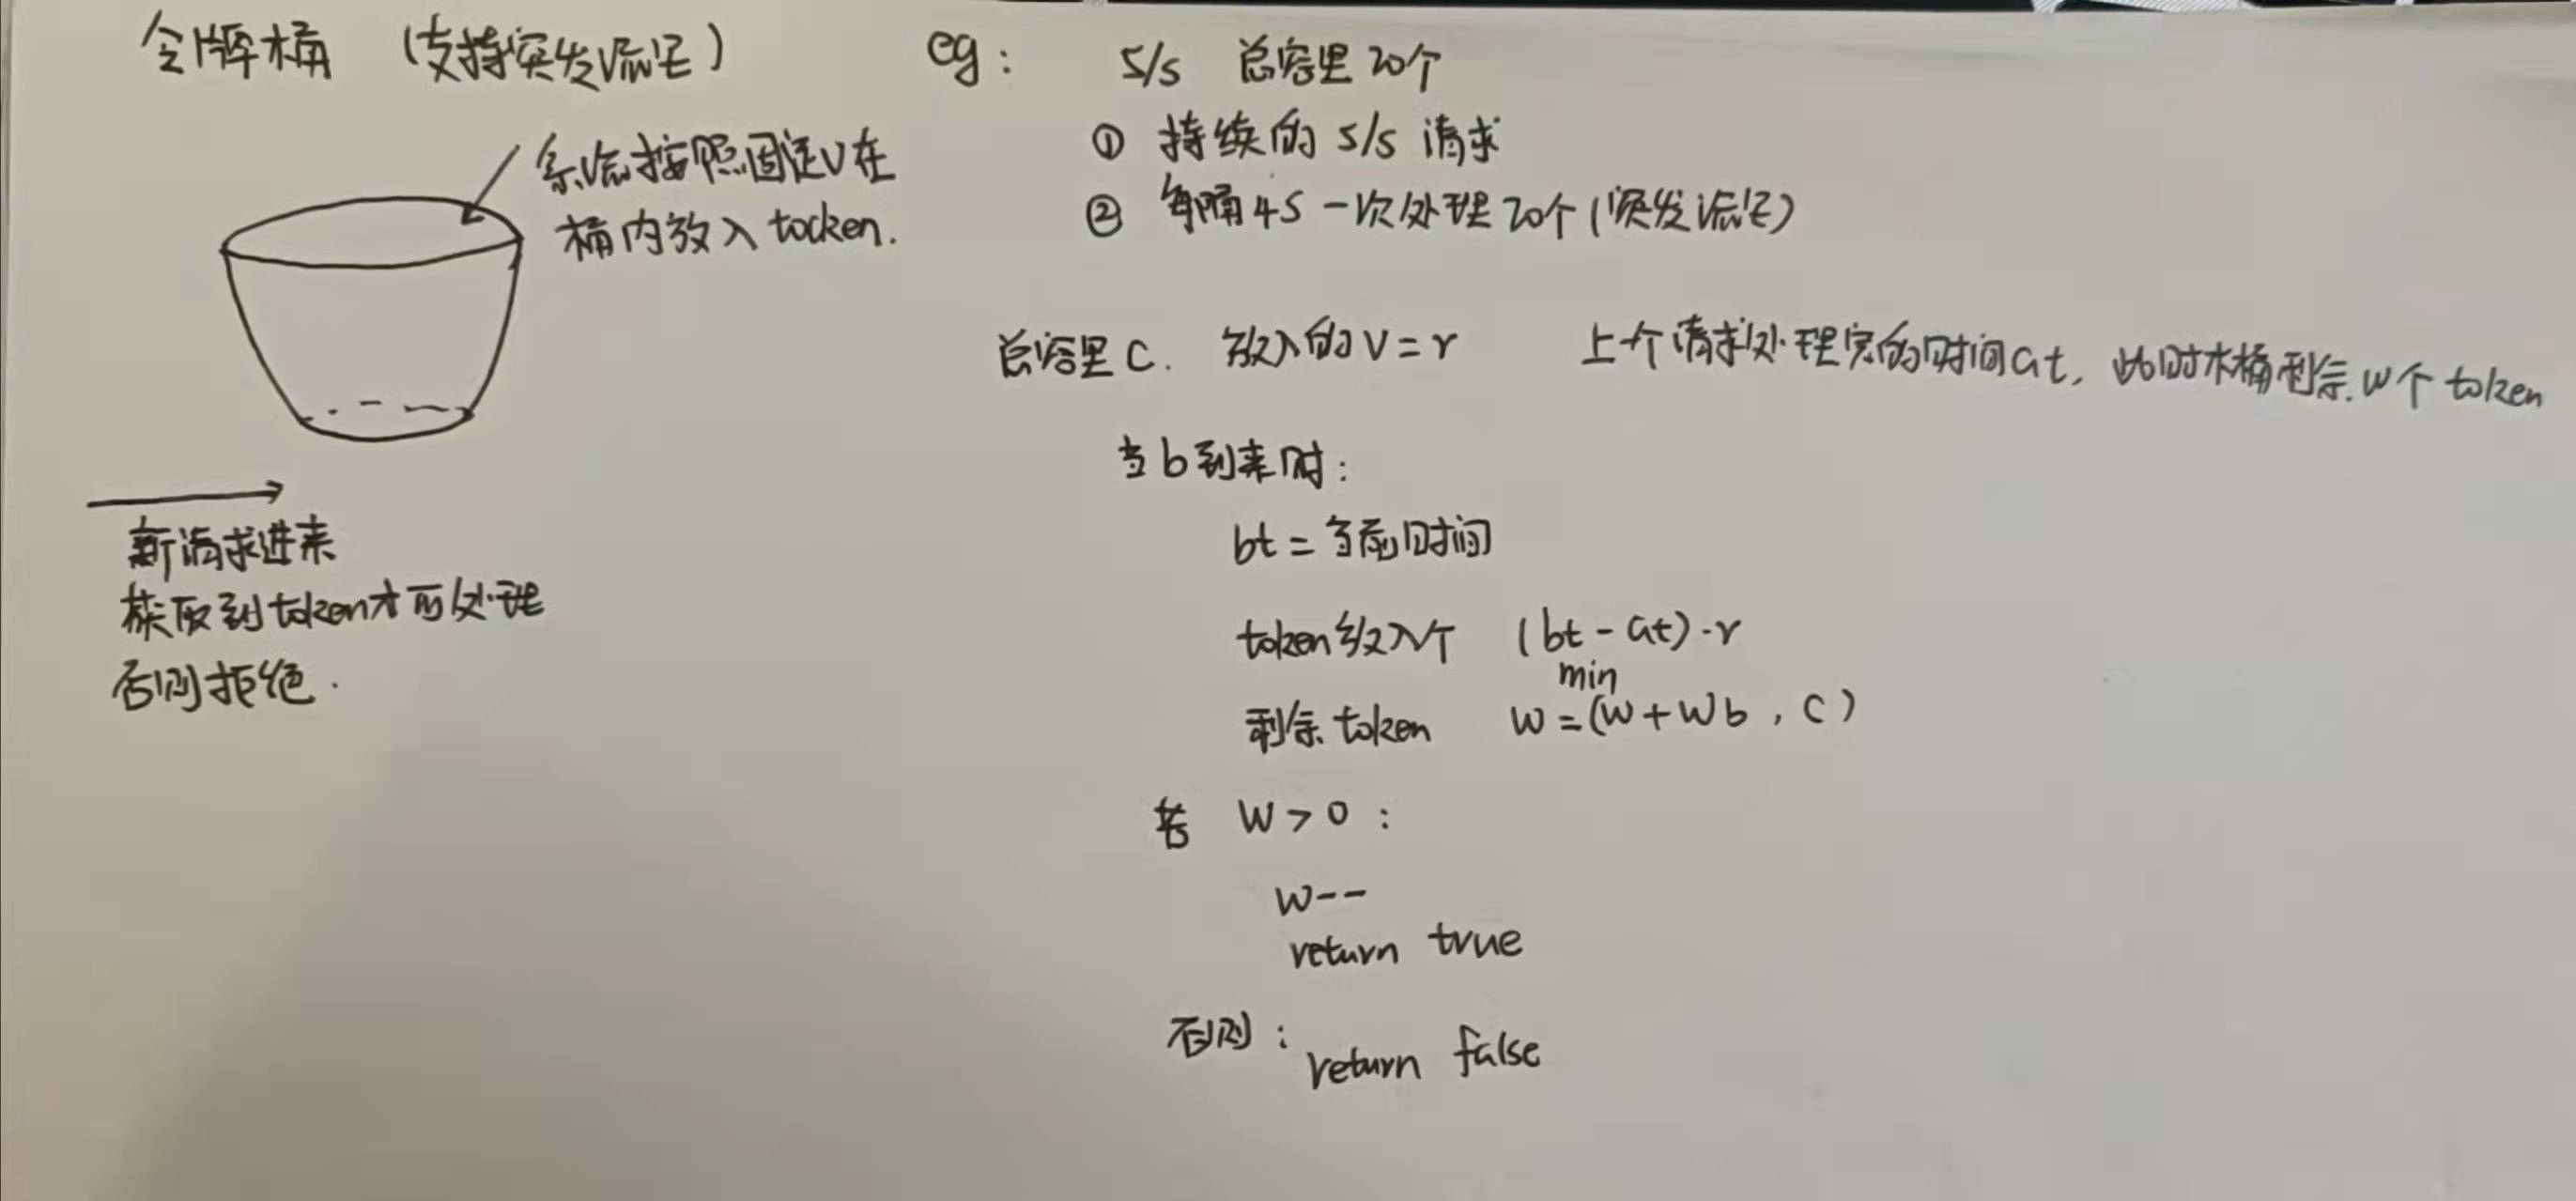 令牌桶 (支持突发流量)
系统按照固定V在
桶内放入 tocken.
新请求进来
获取到token才可处理
否则拒绝.
eg: 5/s 总容量20个
① 持续的 5/s 请求
② 每隔4S一次处理20个(突发流量)
总容量C. 放入的V=r 上个请求处理完的时间at, 此时木桶剩余.w个token
当b到来时:
bt=当前时间
token放入个 (bt-at)·r
min
剩余token w=(w+wb, c)
若 w>0:
w--
return true
否则:
return false